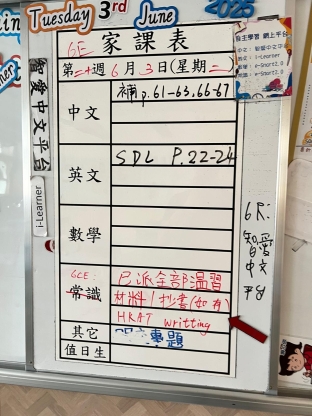 Tuesday 3rd June 2025
6E 家課表
第二十週 6月3日(星期二)
自主學習 網上平台
中文
補p.61-63,66-67
英文
SDL P.22-24
數學
6CE:
常識
已派全部溫習
材料/抄書(如有)
HKAT writting
其它
專題
值日生
智愛中文平台
i-Learner
6R:
智愛
中文
平台